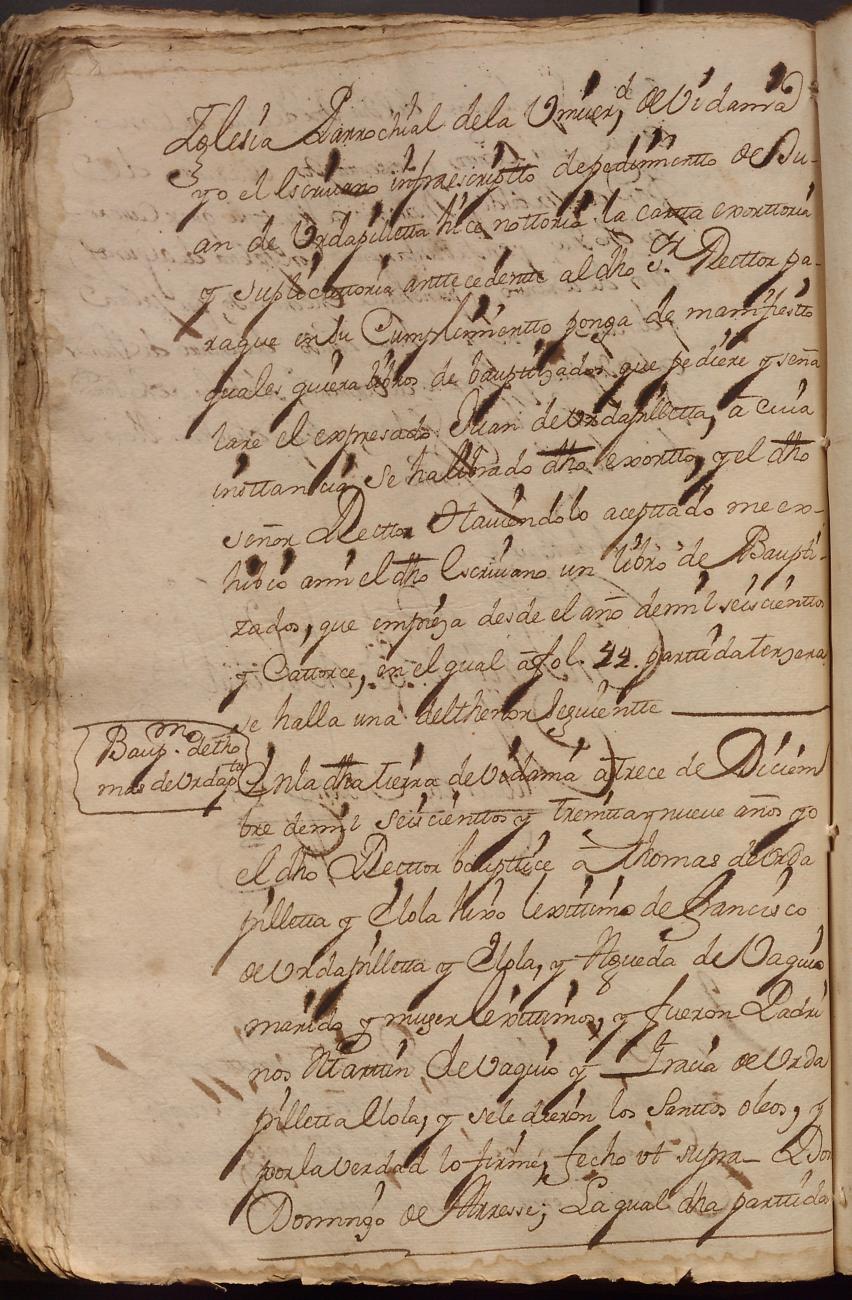 Iglesia Parrochial dela Univer,d de Vidania
yo el Escrivano infraescriptto depedimiento de Ju-
an de Urdapilletta hice nottoria la cartta exorttoria
y suplicattoria anttecedente al dho Sr. Recttor pa-
raque en su Cumplimientto ponga de manifiestto
quales quiera libros de bauptizados que pidiere y seña
lare el expresado Juan de Urdapilletta, à cuia
insttancia se ha librado dho exortto, y el dho
señor Recttor Haviendolo acepttado me ex-
hibió ami el dho Escrivano un libro de Baupti-
zados, que empieza desde el año demil seiscienttos
y Cattorce, en el qual à fol. 44. parttida terzera
se halla una deltthenor Seguientte
Baup.mo detho
mas de Urdaptta
Enla dha tierra de Vidania à trece de Diciem
bre demil seiscienttos y treinttaynueve años yo
el dho Recttor baupttice à Thomas de Urda
pilletta y Elola hixo lexittimo de Francisco
de Urdapilletta y Elola, y Agueda de Vaquio
marido y muger lexittimos, y fueron Padri
nos Marttin de Vaquio y Gracia de Urda
pilletta Elola, y sele dieron los Santtos oleos, y
por la verdad lo firmé, fecho ut supra Don
Domingo de Arresse; La qual dha parttida